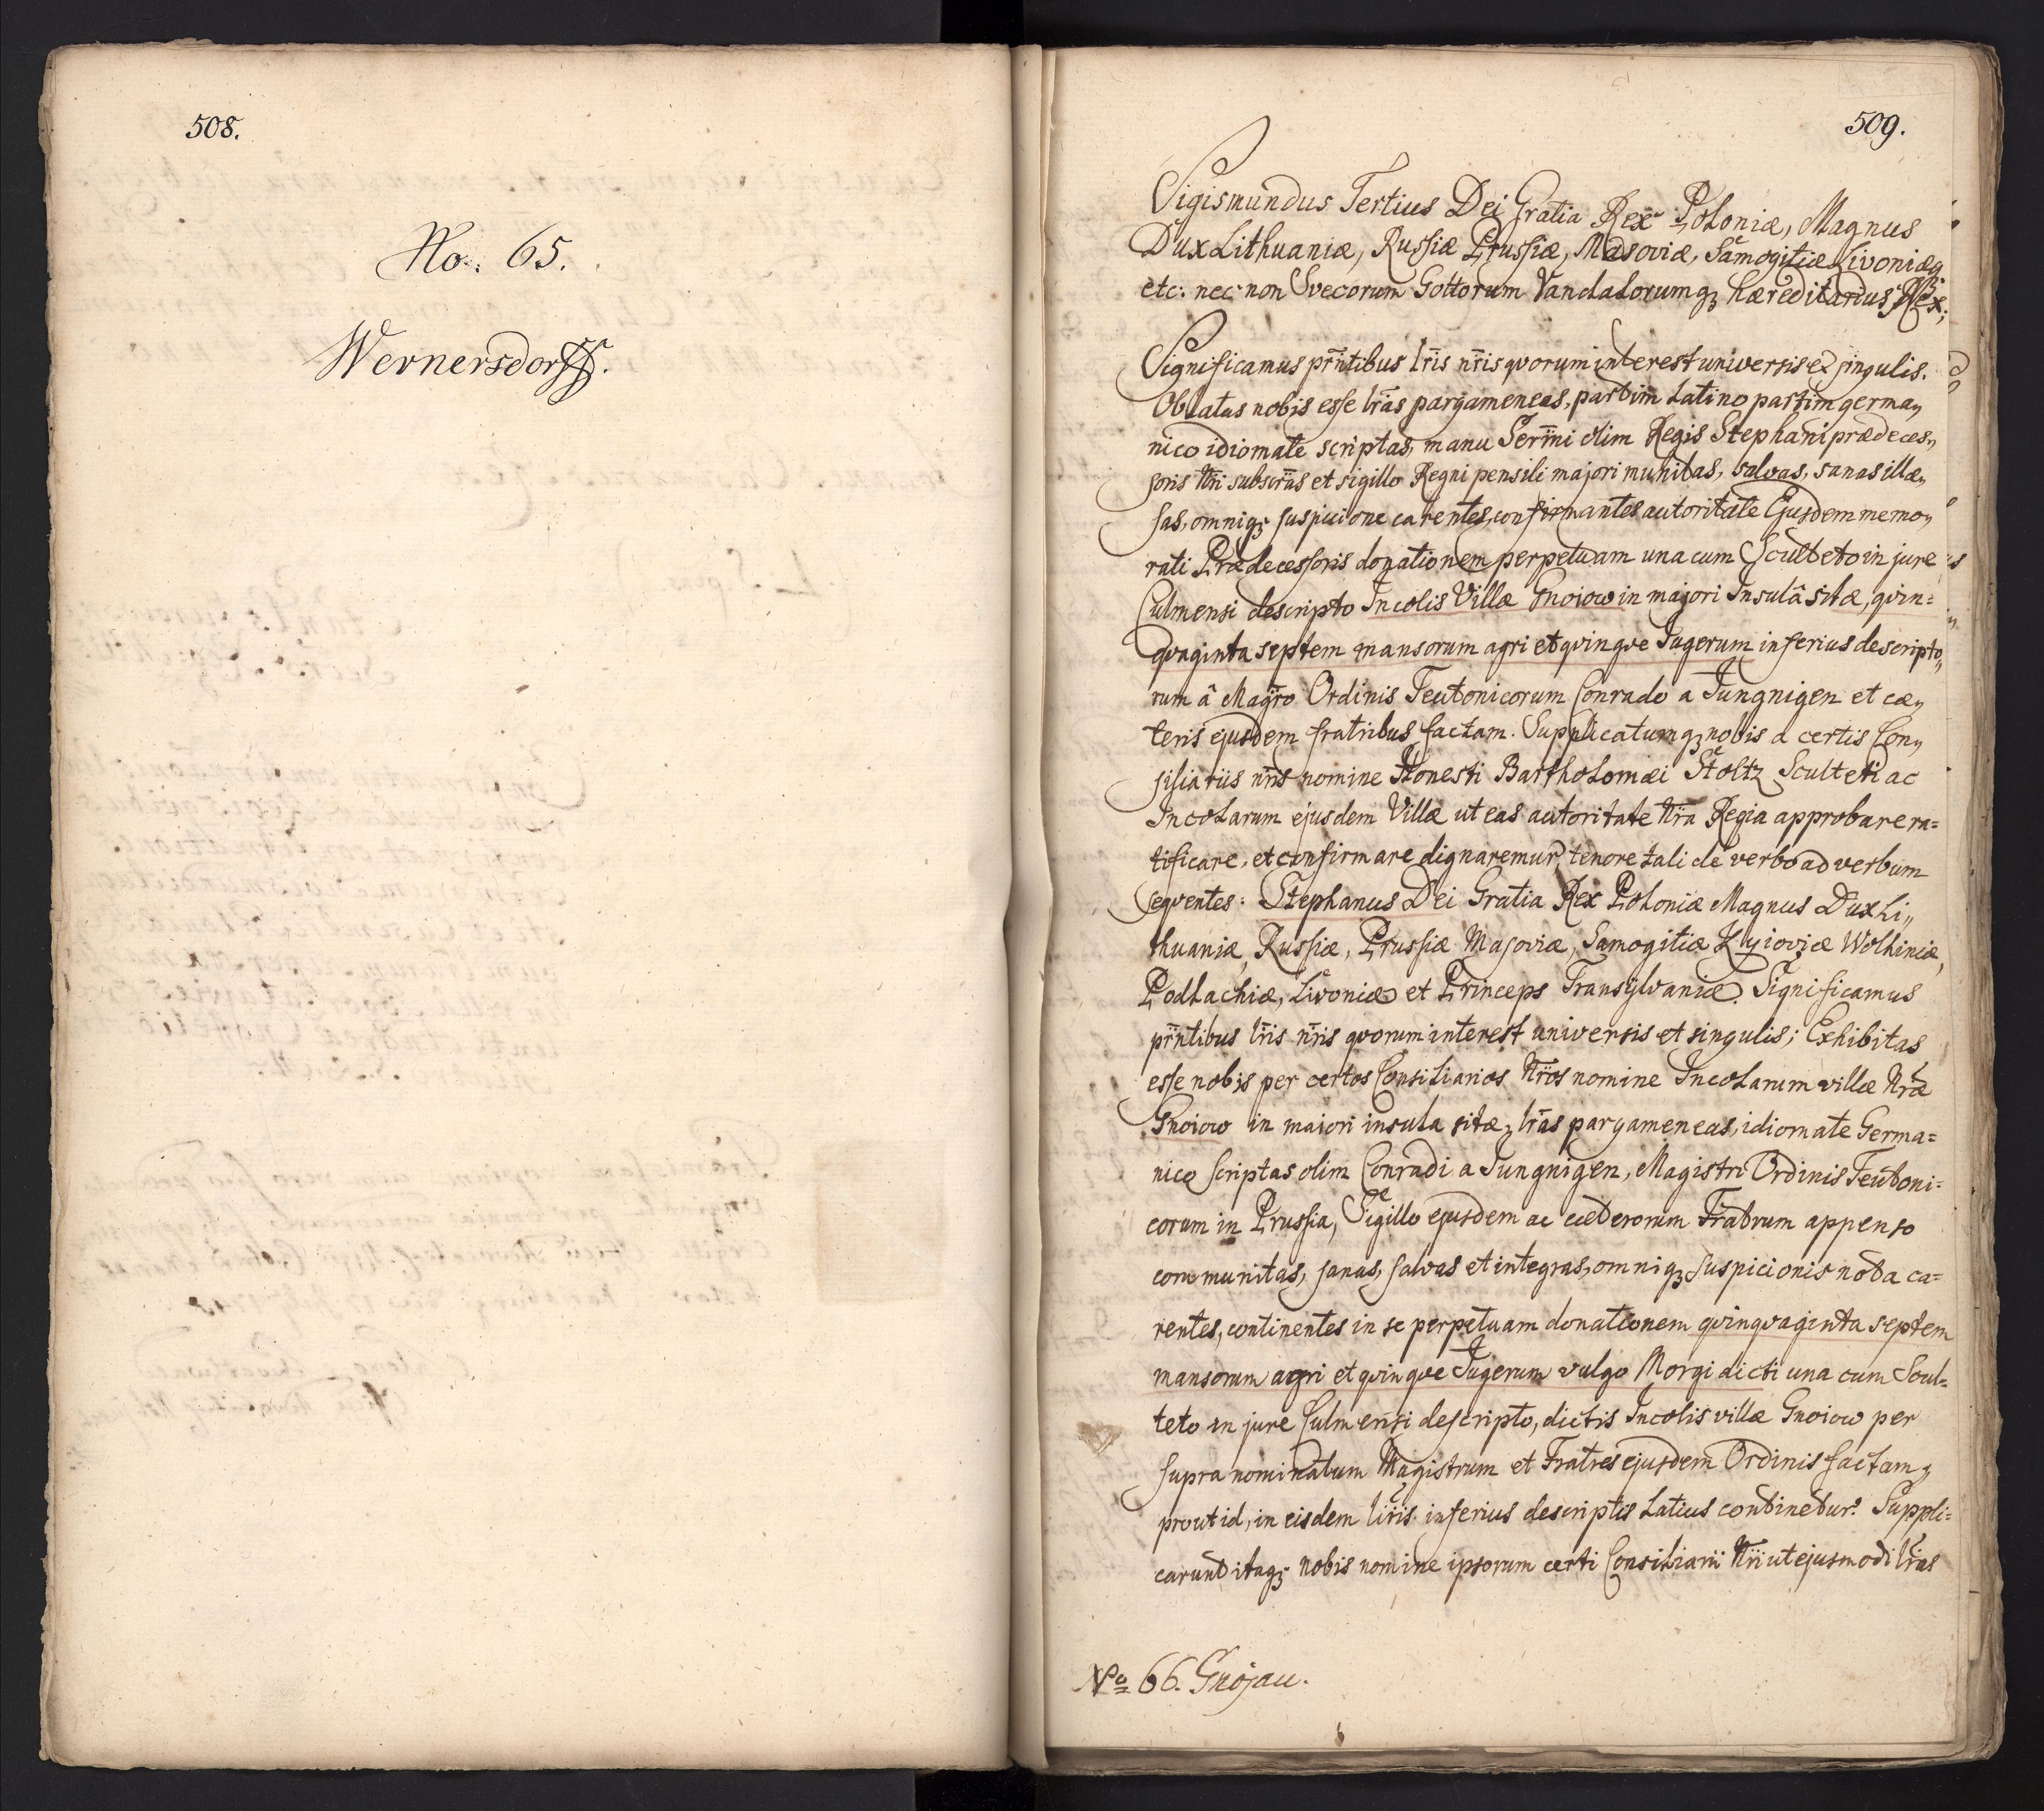 508.
No. 65.
Wernersdorff.
509.
Sigismundus Tertius Dei Gratia Rex Poloniæ, Magnus
Dux Lithuaniæ, Russiæ Prussiæ, Masoviæ, Samogitiæ Livoniæq
etc: nec non Svecorum Gottorum Vandalorumq3 hæreditarius Rex;
Significamus prñtibus lr̃is nr̃is qvorum interest universis et singulis.
Oblatas nobis esse lr̃as pargameneas, partim Latino partim germa„
nico idiomate scriptas, manu Serm̃i olim Regis Stephani prædeces„
soris Nr̃i subscr̃as et sigillo Regni pensili majori munitas, salvas, sanas illæ„
sas, omniq3 suspicione carentes, confirmantes autoritate Ejusdem memo„
rati Prædecessoris donationem perpetuam una cum Sculteto in jure
Culmensi descripto Incolis Villæ Gnoiow in majori Insulâ sitæ, qvin=
qvaginta septem mansorum agri et qvinqve Jugerum inferius descripto„
rum â Magr̃o Ordinis Teutonicorum Conrado a Jungnigen et cæ„
teris ejusdem fratribus factam. Supplicatumq3 nobis a certis Con„
siliariis nr̃is nomine Honesti Bartholomæi Stoltz Sculteti ac
Incolarum ejusdem Villæ ut eas autoritate Nr̃a Regia approbare ra=
tificare, et confirmare dignaremur, tenore tali de verbo ad verbum
seqventes: Stephanus Dei Gratia Rex Poloniæ Magnus Dux Li„
thuaniæ, Russiæ, Prussiæ Masoviæ, Samogitiæ Kyioviæ Wolhiniæ,
Podlachiæ, Livoniæ et Princeps Transÿlvaniæ. Significamus
prñtibus lr̃is nr̃is qvorum interest universis et singulis; Exhibitas
esse nobis per certos Consiliarios Nr̃os nomine Incolarum villæ Nr̃æ
Gnoiow in maiori insula sitæ, lr̃as pargameneas, idiomate Germa=
nico scriptas olim Conradi a Jungnigen, Magistri Ordinis Teutoni=
corum in Prussia, Sigillo ejusdem ac cæterorum Fratrum appenso
communitas, sanas, salvas et integras, omniq3 suspicionis nota ca=
rentes, continentes in se perpetuam donationem qvinqvaginta septem
mansorum agri et qvinqve Jugerum vulgo Morgi dicti una cum Scul=
teto in jure Culmensi descripto, dictis Incolis villæ Gnoiow per
supra nominatum Magistrum et Fratres ejusdem Ordinis factam,
prout id, in eisdem lr̃is inferius descriptis Latius continetur. Suppli=
carunt itaq3 nobis nomine ipsorum certi Consiliarii Nr̃i ut ejusmodi lr̃as
No 66. Gnojau.